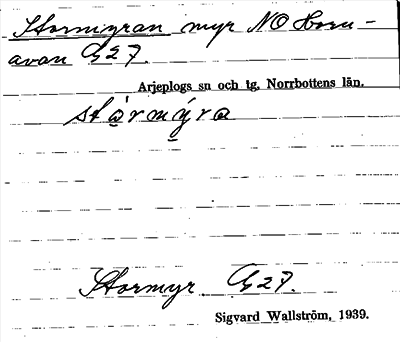 Stormyran myr NO Horn-
avan G27.
Arjeplogs sn och tg, Norrbottens län.
stò̱rmý̱ra
Stormyr G27.
Sigvard Wallström, 1939.